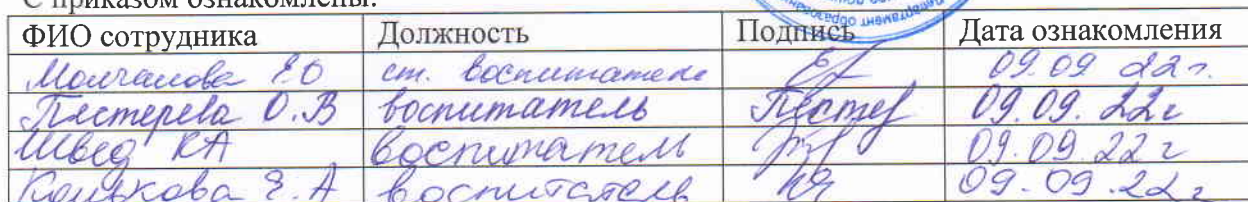 С приказом ознакомлены:
ФИО сотрудника Должность Подпись Дата ознакомления
Молчанова Е.О ст. воспитатель 09.09 22г.
Пестерева О.В воспитатель Пестер 09.09.22г
Швед КА воспитатель 09.09.22г
Конькова Е.А воспитатель 09.09.22г